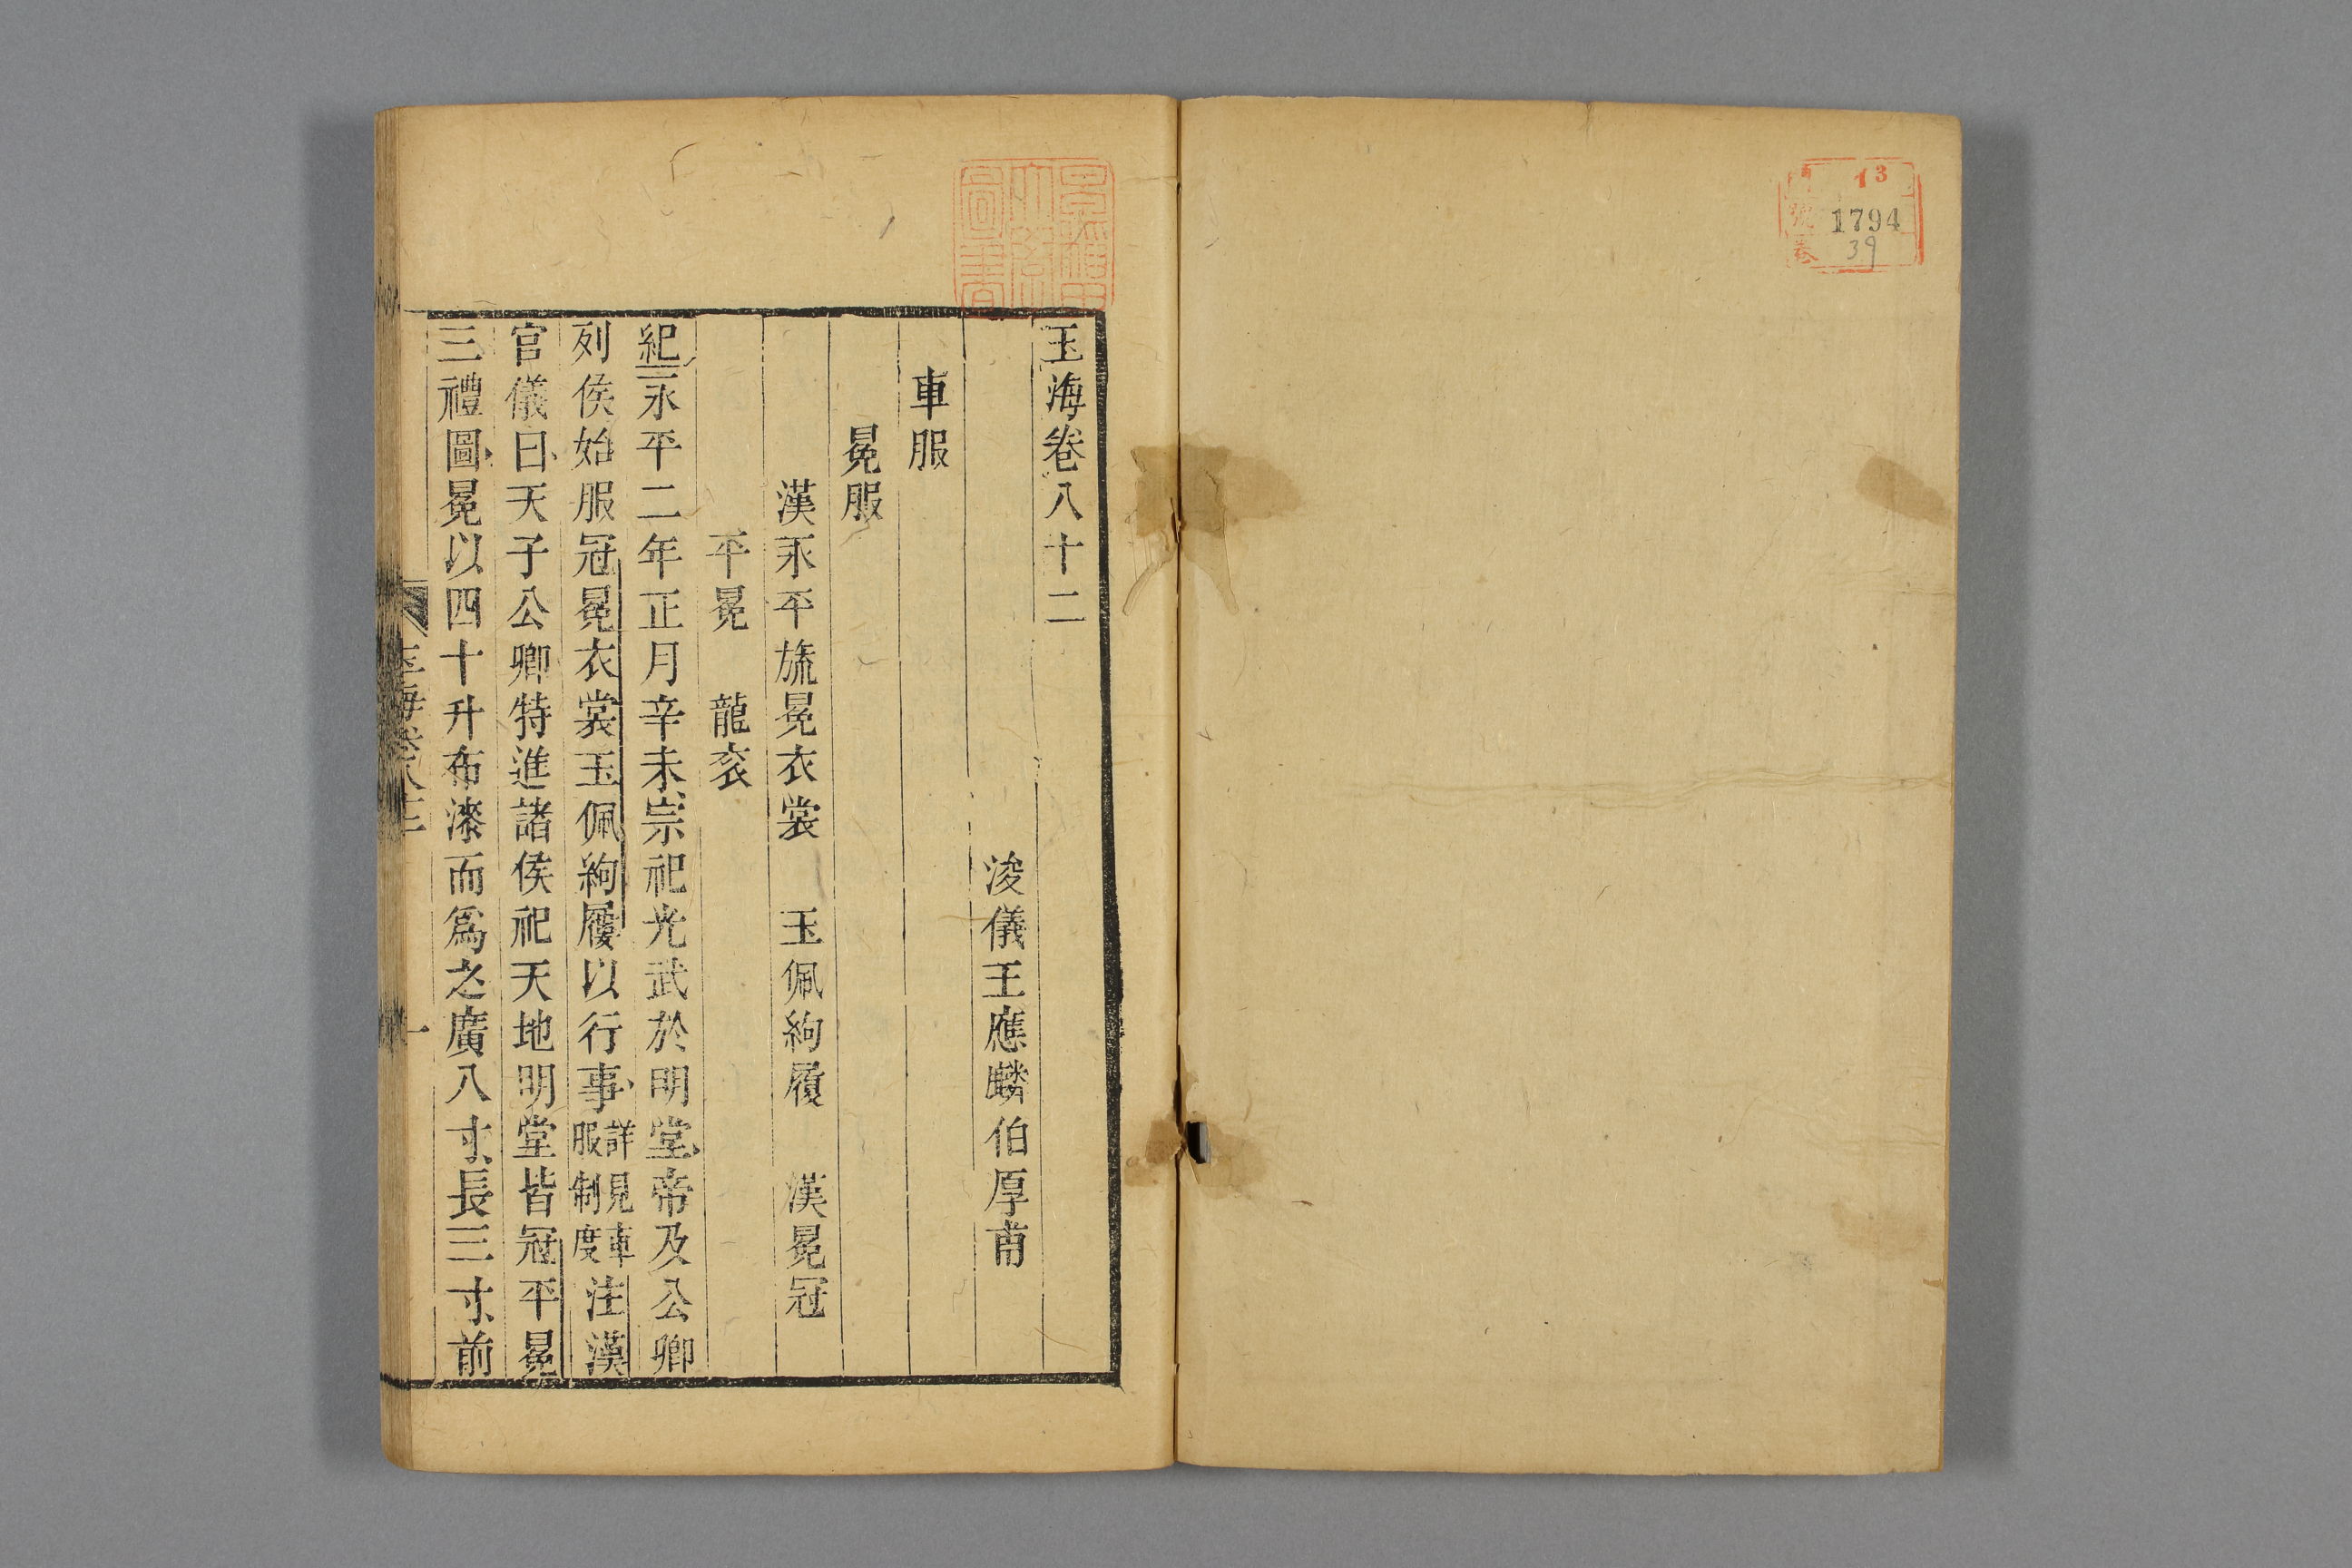 門 13
號 1794
卷 39
玉海卷八十二
浚儀王應麟伯厚甫
車服
冕服
漢永平旒冕衣裳 玉佩絇履 漢冕冠
平冕 龍衮
紀永平二年正月辛未宗祀光武於明堂帝及公卿
列侯始服冠冕衣裳玉佩絇屨以行事詳見車服制度注漢
官儀曰天子公卿特進諸侯祀天地明堂皆冠平冕
三禮圖冕以四十升布漆而爲之廣八寸長三寸前
玉海卷八十二 一